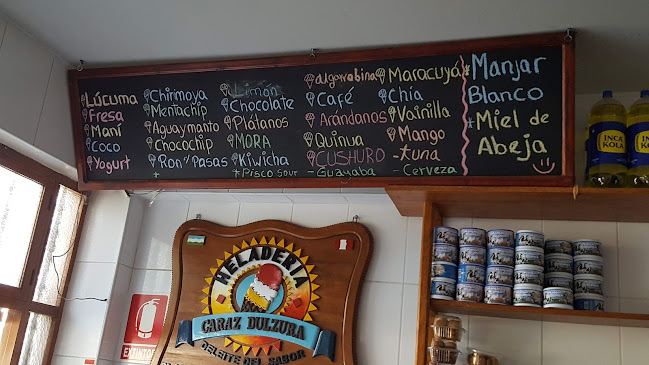 Lúcuma
Fresa
Maní
Coco
Yogurt
Chirimoya
Mentachip
Aguaymanto
Chocochip
Ron y Pasas
Limón
Chocolate
Plátanos
MORA
Kiwicha
Pisco sour
algarrobina
Café
Arándanos
Quinua
CUSHURO
- Guayaba
Maracuyá
Chía
Vainilla
Mango
- tuna
- Cerveza
Manjar
Blanco
Miel de
Abeja
HELADERIA
CARAZ DULZURA
DELEITE DEL SABOR
EXTINTOR
INCA
KOLA
INCA
KOLA